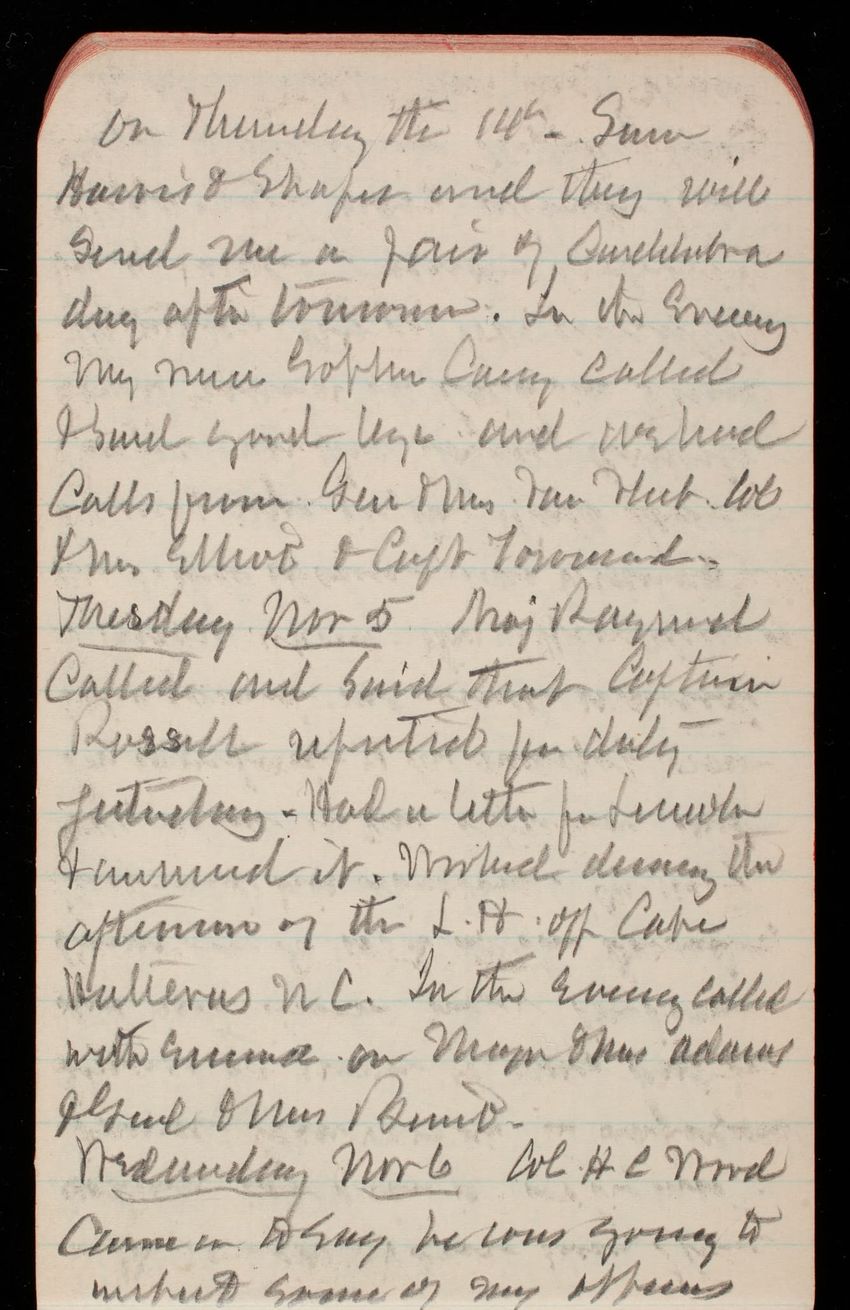 on Thursday the 14th - Saw
Harris & Shafer and they will
send me a pair of Candelabra
day after tomorrow. In the Evening
My niece Sophie Casey called
& said good bye and we had
Calls from Gen & Mrs Van Vliet. Col
& Mrs Elliot & Capt Townsend -
Tuesday Nov 5. Maj Raymond
Called and said that Captain
Rossell reported for duty
yesterday - Had a letter fr Lincoln
& answered it. Worked during the
afternoon on the L. H. off Cape
Hatteras N C. In the Evening called
with Emma on Major & Mrs Adams
& Genl & Mrs Benét -
Wednesday Nov 6 Col H C Wood
Came in to say he was going to
some of my officers